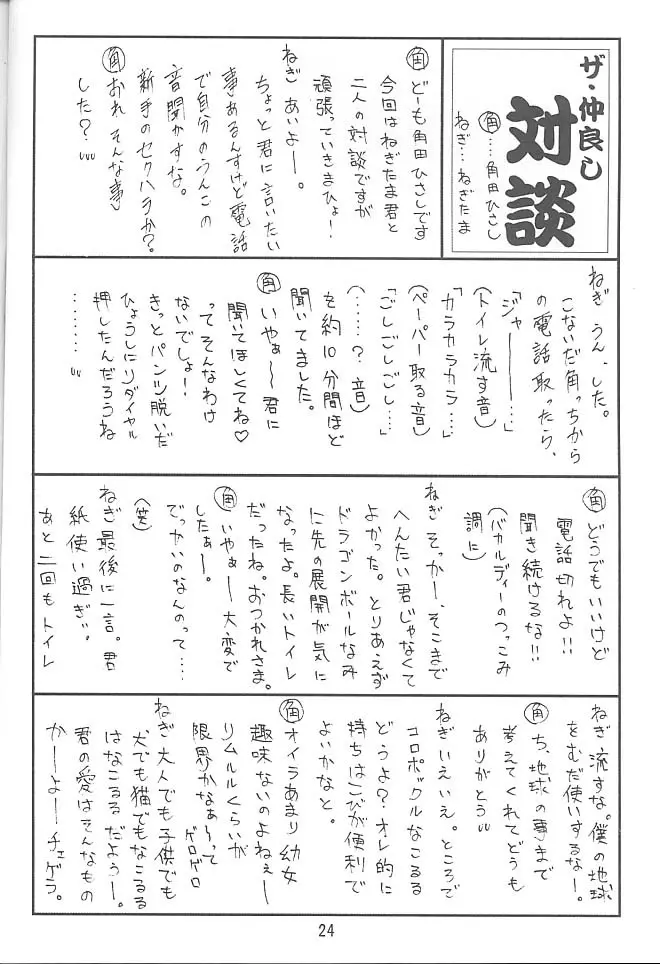 ザ・仲良し
対談
角…角田ひさし
ねぎ…ねぎたま
角 どーも角田ひさしです
今回はねぎたま君と
二人の対談ですが
頑張っていきまひょ!
ねぎ あいよー。
ちょっと君に言いたい
事あるんすけど電話
で自分のうんこの
音聞かすな。
新手のセクハラか?
角 おれそんな事
した?
ねぎ うん、した。
こないだ角っちから
の電話取ったら、
「ジャーーー…」
(トイレ流す音)
「カラカラカラ…」
(ペーパー取る音)
「ごしごしごし…」
(……?音)
を約10分間ほど
聞いてました。
角 いやぁ~君に
聞いてほしくてね♡
ってそんなわけ
ないでしょ!
きっとパンツ脱いだ
ひょうしにリダイヤル
押したんだろうね
………
角 どうでもいいけど
電話切れよ!!
聞き続けるな!!
(バカルディーのつっこみ
調に)
ねぎ そっかー、そこまで
へんたい君じゃなくて
よかった。とりあえず
ドラゴンボールなみ
に先の展開が気に
なったよ。長いトイレ
だったね。おつかれさま。
角 いやぁー大変で
したぁー。
でっかいのなんのって…
(笑)
ねぎ 最後に一言。君
紙使い過ぎ。
あと二回もトイレ
ねぎ 流すな。僕の地球
をむだ使いするなー。
角 ち、地球の事まで
考えてくれてどうも
ありがとう
ねぎ いえいえ。ところで
コロポックルなこるる
どうよ?オレ的に
持ちはこびが便利で
よいかなと。
角 オイラあまり幼女
趣味ないのよねぇー
リムルルくらいが
限界かなぁ~って
ゲロゲロ
ねぎ 大人でも子供でも
犬でも猫でもなこるる
はなこるるだよぅー。
君の愛はそんなもの
かーよーチェゲラ。
24